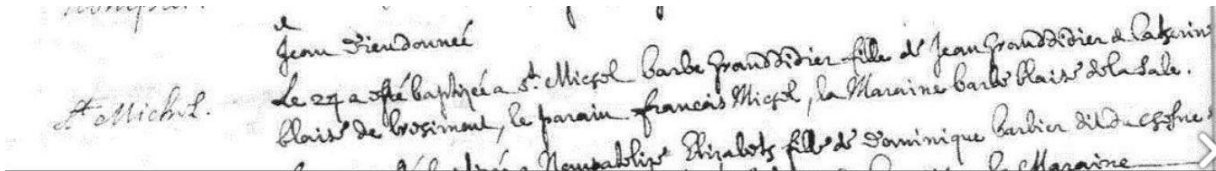 Jean Dieudonneé
St Michel. Le 27 a esté baptizée a St Michel barbe Granddidier fille de Jean Granddidier & Catherin
blaise de bresimont, le parain francois Michel, la Maraine barbe blaise de la Sale.
baptizée a Nompatelize Elizabeth fille de Dominique barbier dit du chesne
la Maraine